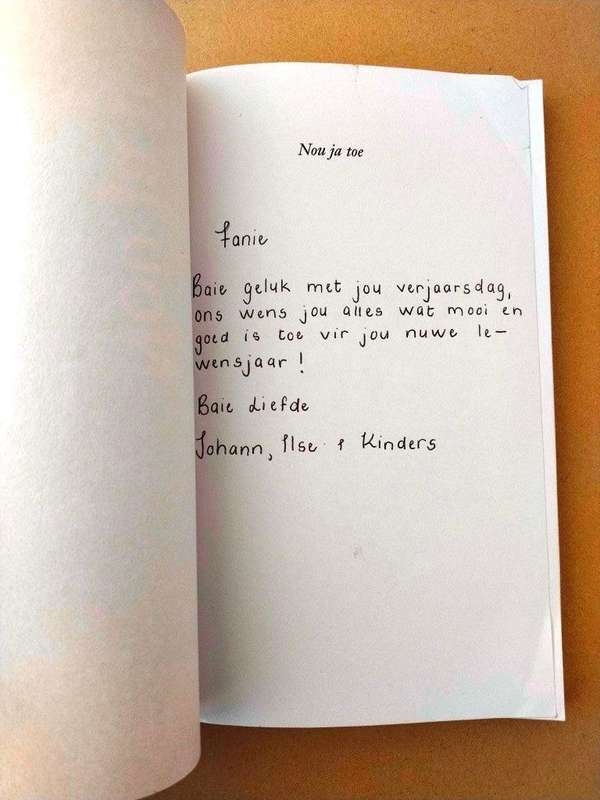 Nou ja toe
Fanie
Baie geluk met jou verjaarsdag,
ons wens jou alles wat mooi en
goed is toe vir jou nuwe le-
wensjaar!
Baie Liefde
Johann, Ilse & Kinders